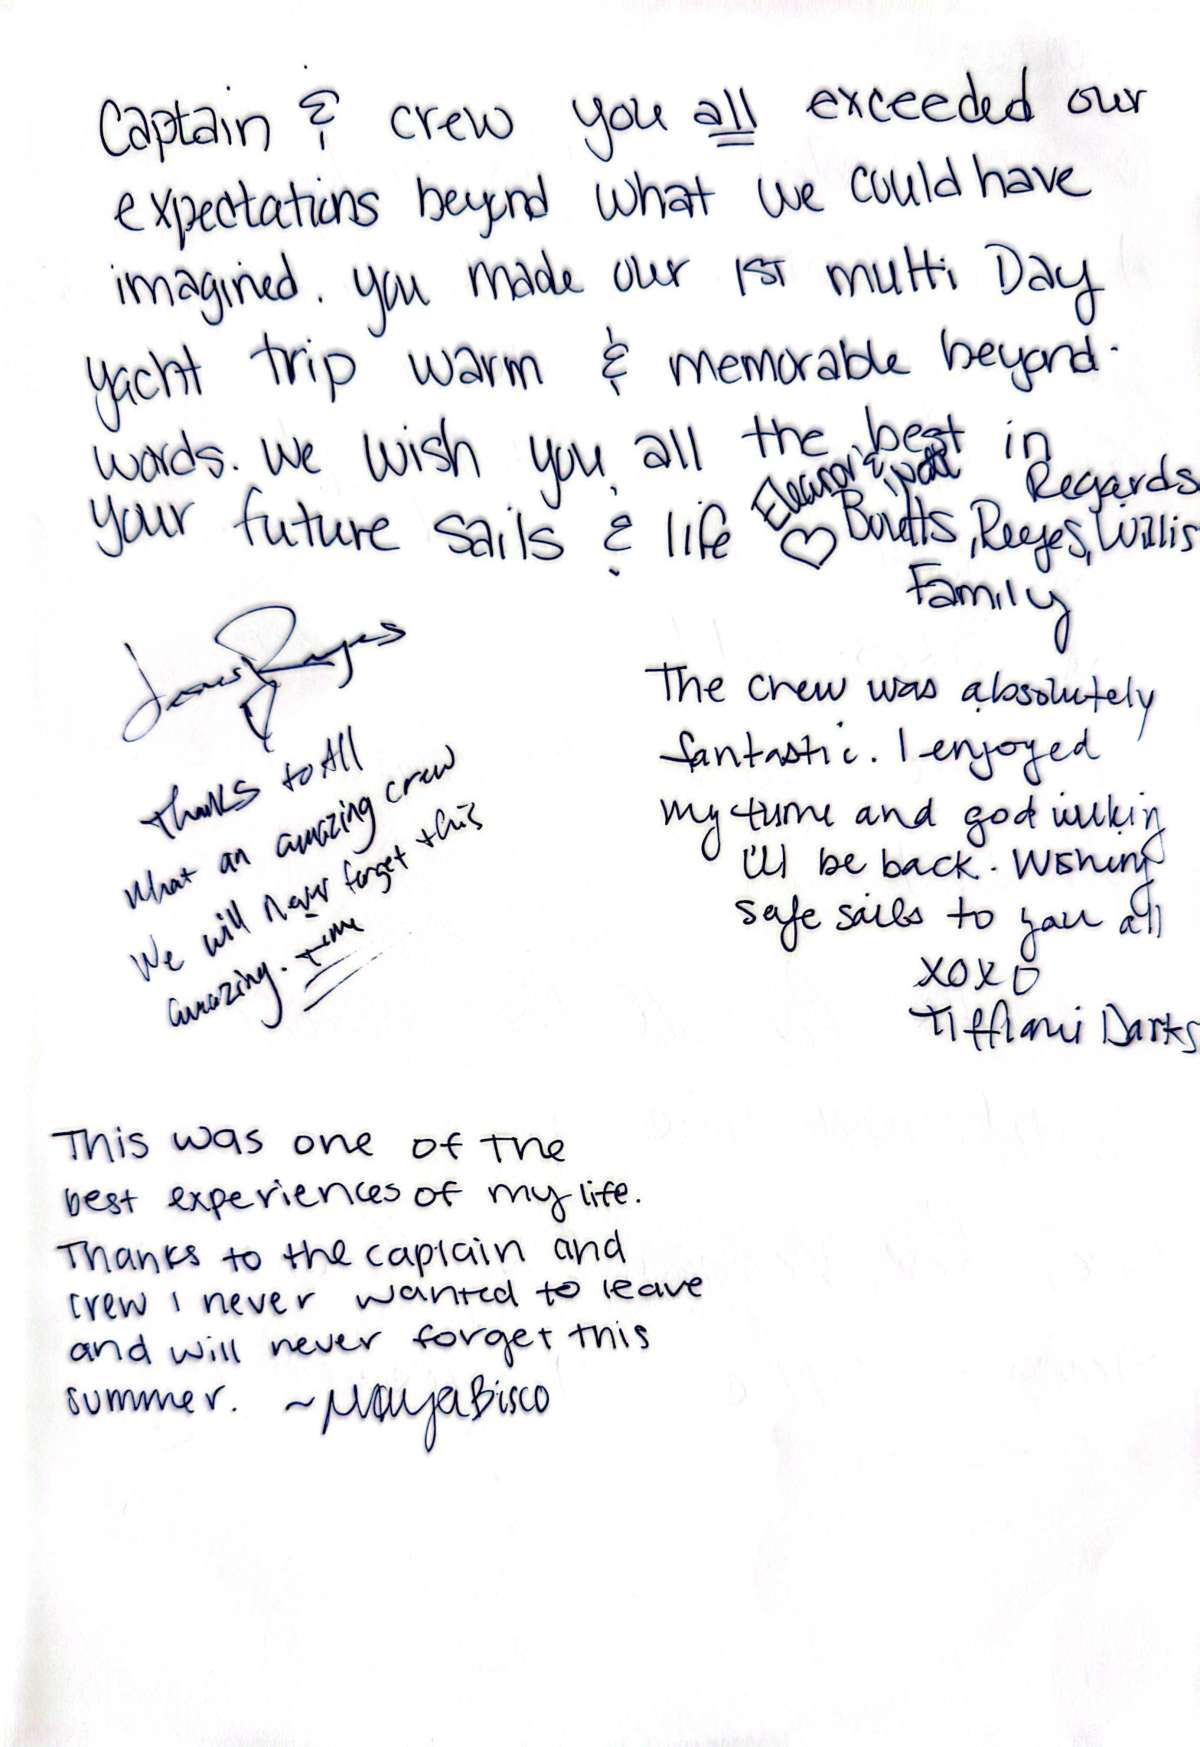 Captain & crew you all exceeded our
expectations beyond what we could have
imagined. you made our 1ST multi Day
yacht trip warm & memorable beyond.
words. We wish you all the best in
your future sails & life
Eleanor &
Regards
♡ Buretts, Reeyes, Willis
Family
James Reeyes
Thanks to All
what an amazing crew
We will never forget this
amazing. time
The crew was absolutely
fantastic. I enjoyed
my time and god willing
I'll be back. Wishing
safe sails to you all
XOXO
Tiffiani Darks
This was one of the
best experiences of my life.
Thanks to the captain and
crew I never wanted to leave
and will never forget this
summer. ~Maya Bisco